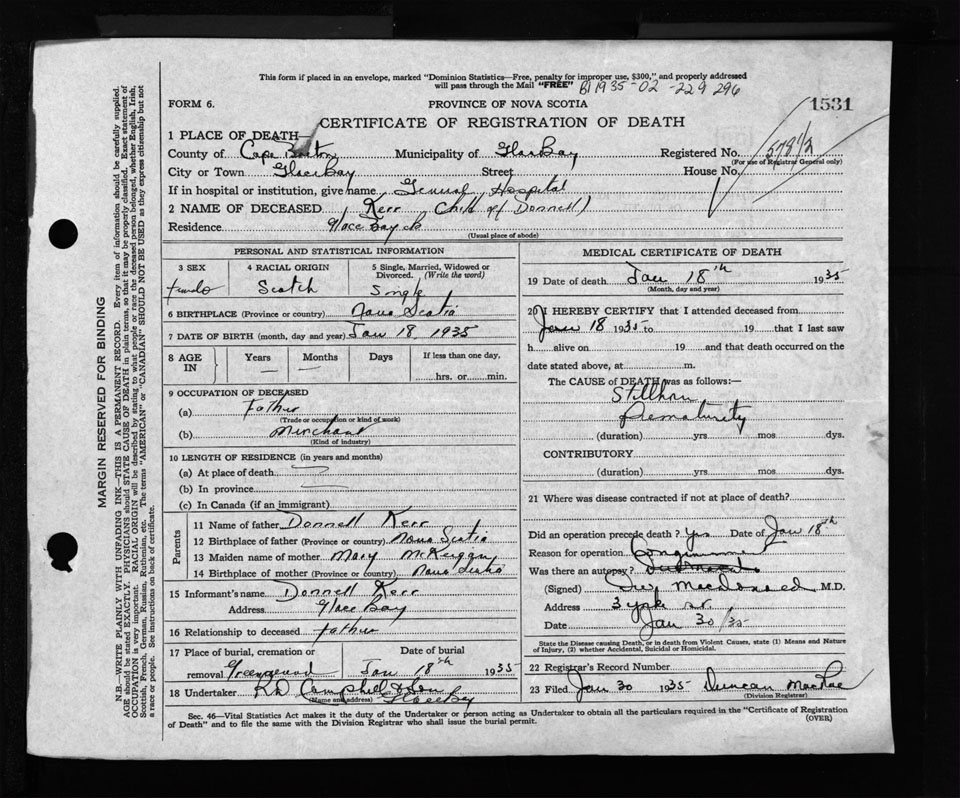 This form if placed in an envelope, marked "Dominion Statistics—Free, penalty for improper use, $300," and properly addressed
will pass through the Mail "FREE" B1 1935-02-229 296
FORM 6. PROVINCE OF NOVA SCOTIA 1531
CERTIFICATE OF REGISTRATION OF DEATH
1 PLACE OF DEATH—
County of Cape Breton Municipality of Glace Bay Registered No.
(For use of Registrar General only)
City or Town Glace Bay Street House No.
If in hospital or institution, give name General Hospital
2 NAME OF DECEASED Kerr Child of Donnell)
Residence Glace Bay
(Usual place of abode)
PERSONAL AND STATISTICAL INFORMATION
3 SEX 4 RACIAL ORIGIN 5 Single, Married, Widowed or Divorced. (Write the word)
Scotch Single
6 BIRTHPLACE (Province or country) Nova Scotia
7 DATE OF BIRTH (month, day and year) Jan 18, 1935
8 AGE IN Years Months Days If less than one day,
hrs. or min.
9 OCCUPATION OF DECEASED
(a) Father
(Trade or occupation or kind of work)
(b) Merchant
(Kind of industry)
10 LENGTH OF RESIDENCE (in years and months)
(a) At place of death
(b) In province
(c) In Canada (if an immigrant)
Parents
11 Name of father Donnell Kerr
12 Birthplace of father (Province or country) Nova Scotia
13 Maiden name of mother Mary
14 Birthplace of mother (Province or country) Nova Scotia
15 Informant's name Donnell Kerr
Address Glace Bay
16 Relationship to deceased father
17 Place of burial, cremation or removal Greenwood
Date of burial Jan 18th 1935
18 Undertaker Campbell & Son
(Name and address) Glace Bay
MEDICAL CERTIFICATE OF DEATH
19 Date of death Jan 18th 1935
(Month, day and year)
20 I HEREBY CERTIFY that I attended deceased from
Jan 18 1935 to 19 that I last saw
h alive on 19 and that death occurred on the
date stated above, at m.
The CAUSE of DEATH was as follows:—
Stillborn
Prematurity
(duration) yrs. mos dys.
CONTRIBUTORY
(duration) yrs. mos. dys.
21 Where was disease contracted if not at place of death?
Did an operation precede death? Yes Date of Jan 18th
Reason for operation
Was there an autopsy?
(Signed) MacDonald M.D.
Address 3 York St.
Date Jan 30/35
State the Disease causing Death, or in death from Violent Causes, state (1) Means and Nature
of Injury, (2) whether Accidental, Suicidal or Homicidal.
22 Registrar's Record Number
23 Filed Jan 30 1935 Duncan MacRae
(Division Registrar)
Sec. 46—Vital Statistics Act makes it the duty of the Undertaker or person acting as Undertaker to obtain all the particulars required in the "Certificate of Registration
of Death" and to file the same with the Division Registrar who shall issue the burial permit. (OVER)
MARGIN RESERVED FOR BINDING
N.B.—WRITE PLAINLY WITH UNFADING INK—THIS IS A PERMANENT RECORD. Every item of information should be carefully supplied.
AGE should be stated EXACTLY. PHYSICIANS should STATE CAUSE OF DEATH in plain terms, so that it may be properly classified. Exact statement of
OCCUPATION is very important. RACIAL ORIGIN will be described by stating to what people or race the deceased person belonged, whether English, Irish,
Scottish, French, German, Russian, Ruthenian, etc. The terms "AMERICAN" or "CANADIAN" SHOULD NOT BE USED as they express citizenship but not
a race or people. See instructions on back of certificate.